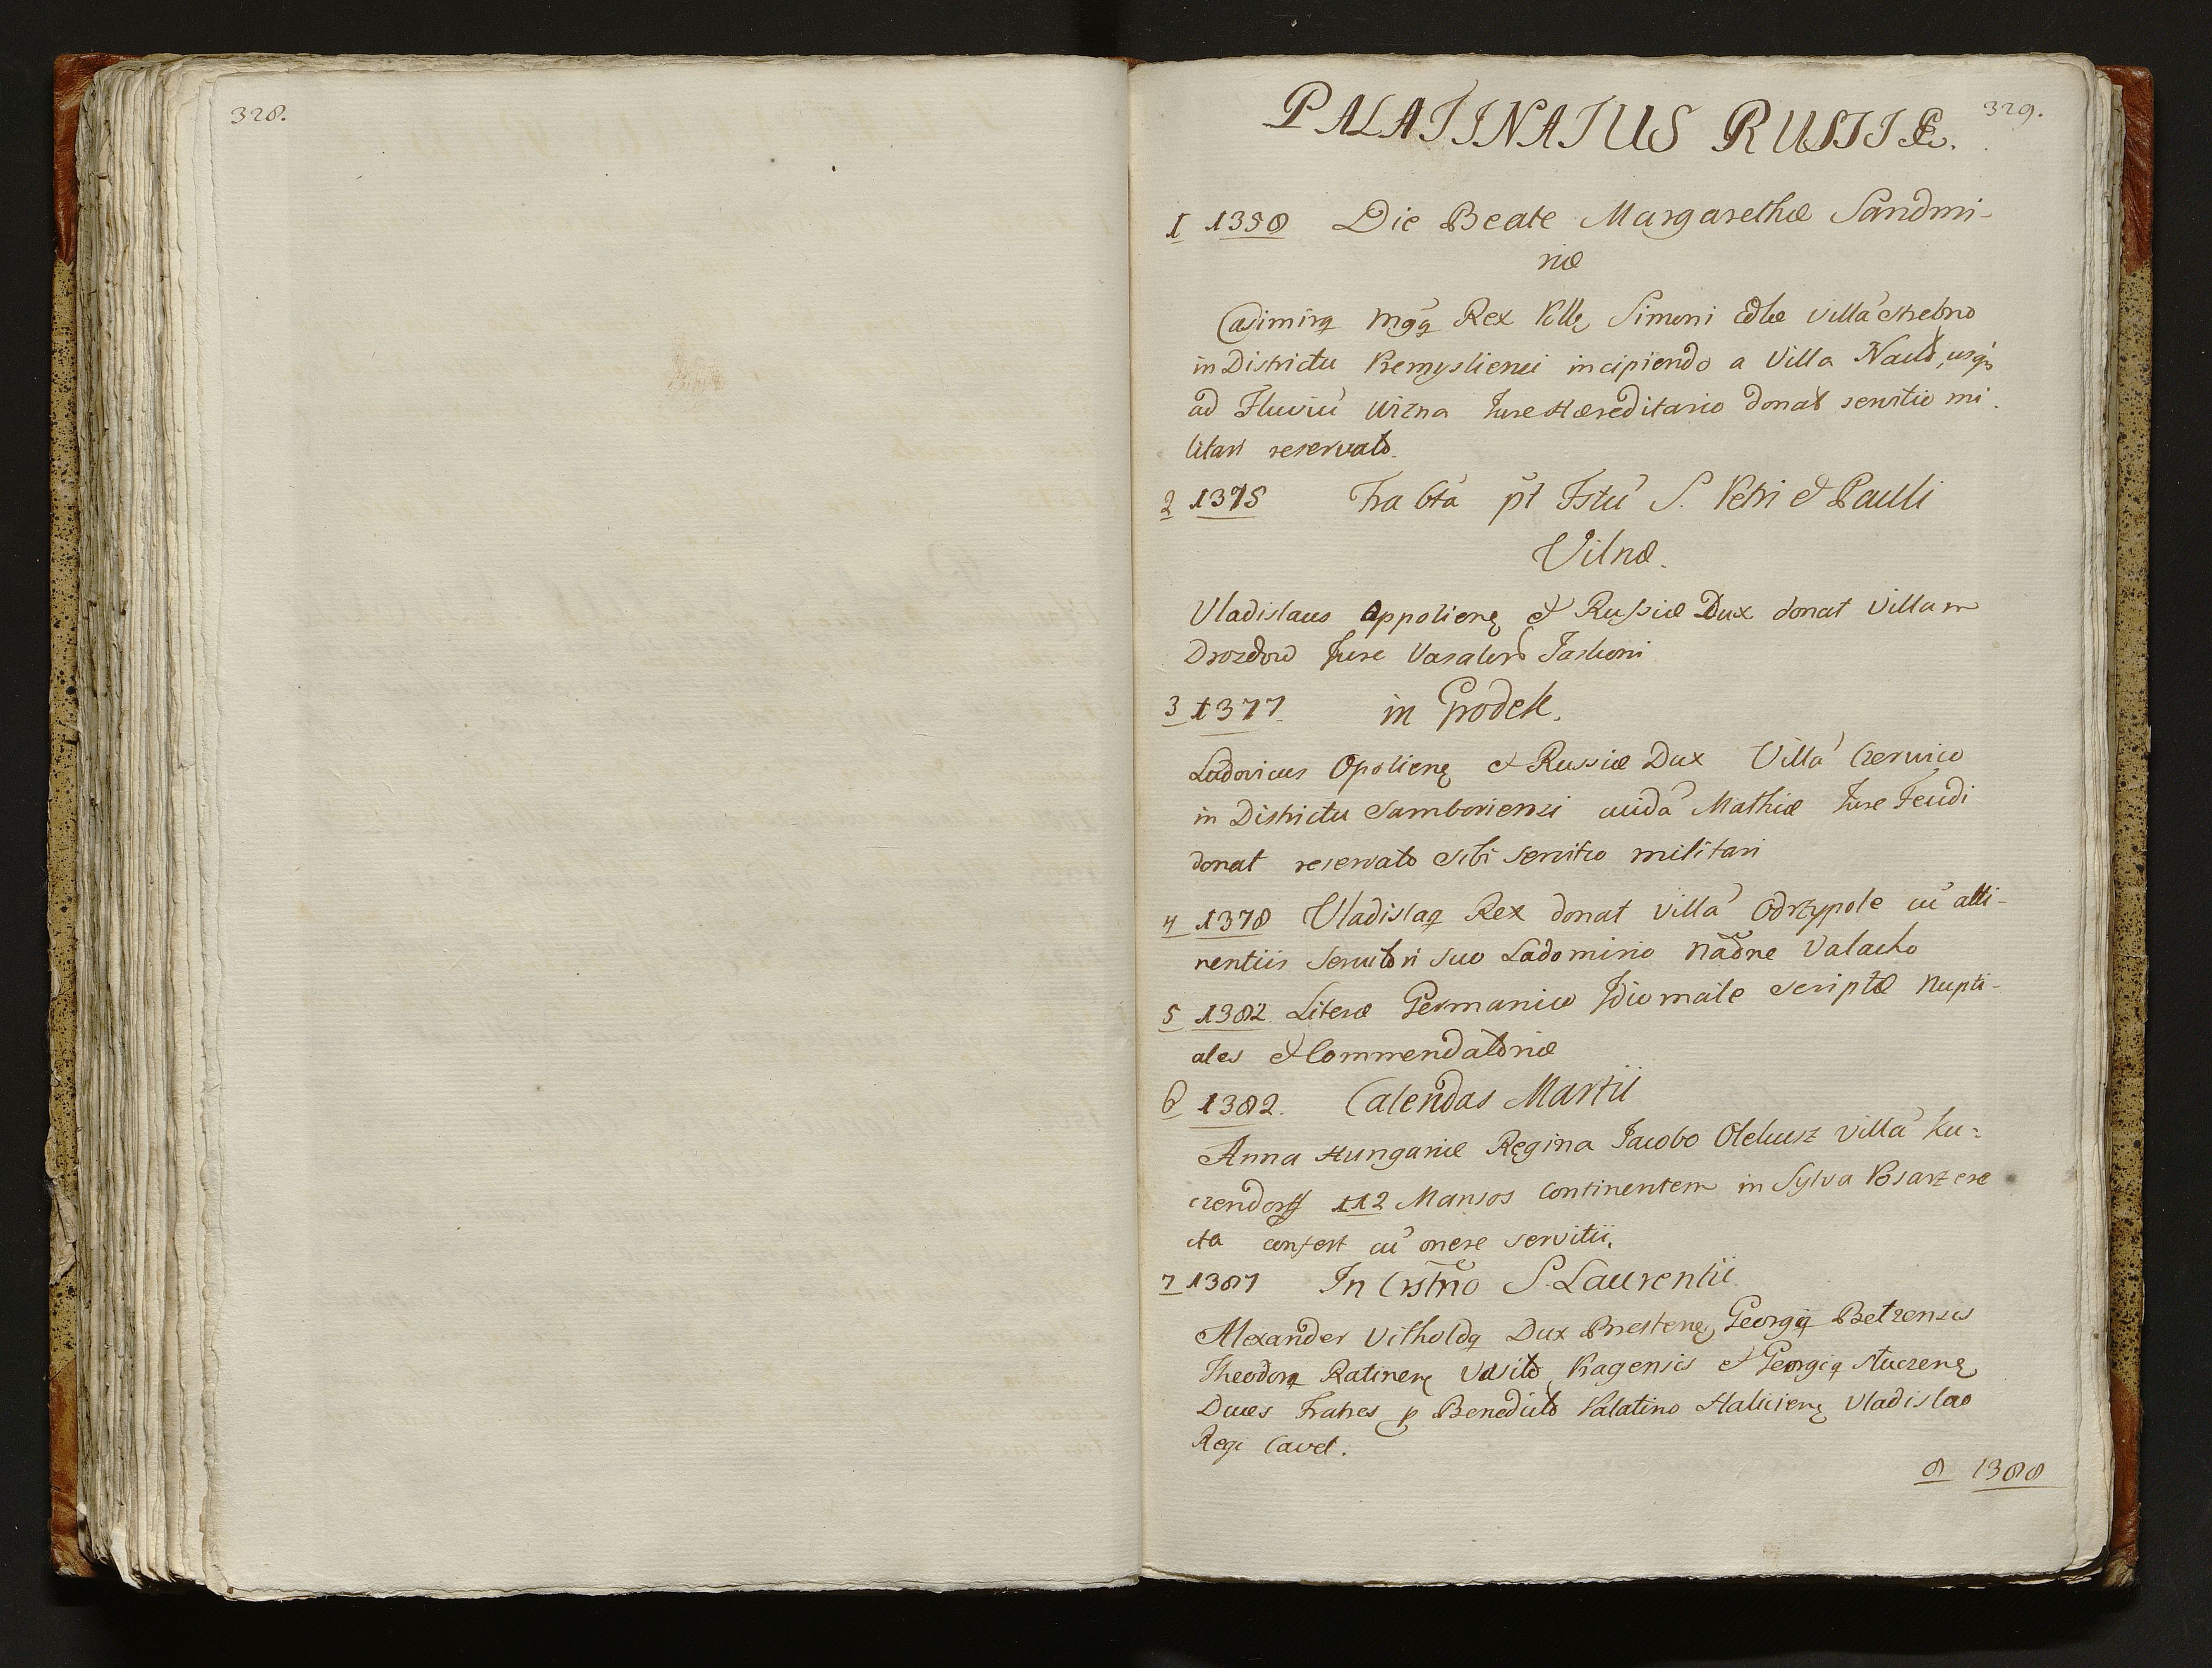 328.
329.
PALATINATUS RUSSIÆ.
1 1358 Die Beate Margarethæ Sandmi-
riæ
Casimirꝯ Mgꝯ Rex Pollę Simoni villã
in Districtu Premysliensi incipiendo a Villa usqꝫ
ad Fluviũ Wizna Jure Hæreditario donat servitio mi-
litari reservato.
2 1375 Fra 6tã pt Fstũ S. Petri & Pauli
Vilnæ.
Vladislaus Oppolienę & Russiæ Dux donat Villam
Drozdow Jure Vasalor Jaskoni
3 1377. in Grodek.
Ludovicus Opolienę & Russiæ Dux Villã
in Districtu Samboriensi cuidã Mathiæ Jure Feudi
donat reservato sibi servitio militari
4 1378 Vladislaꝯ Rex donat villã Odrzypole cũ atti-
nentiis servitori suo Ladomirio nãõne Valacho
5 1382 Literæ Germanico Idiomate scriptæ Nupti-
ales & Commendatoriæ
6 1382. Calendas Martii
Anna Hungariæ Regina Jacobo Olehusz villã Ku-
czendorff 112 Mansos continentem in Sylva
cta confert cũ onere servitii.
7 1387 In Cstrio S. Laurentii
Alexander Vitholdꝯ Dux Brestenę, Georgiꝯ Betzensis
Theodorꝯ Ratinenę Wasilo Pragensis & Georgiꝯ Stuczenę
Duces Fratres p Benedicto Palatino Halicienę Vladislao
Regi Cavet.
8 1388